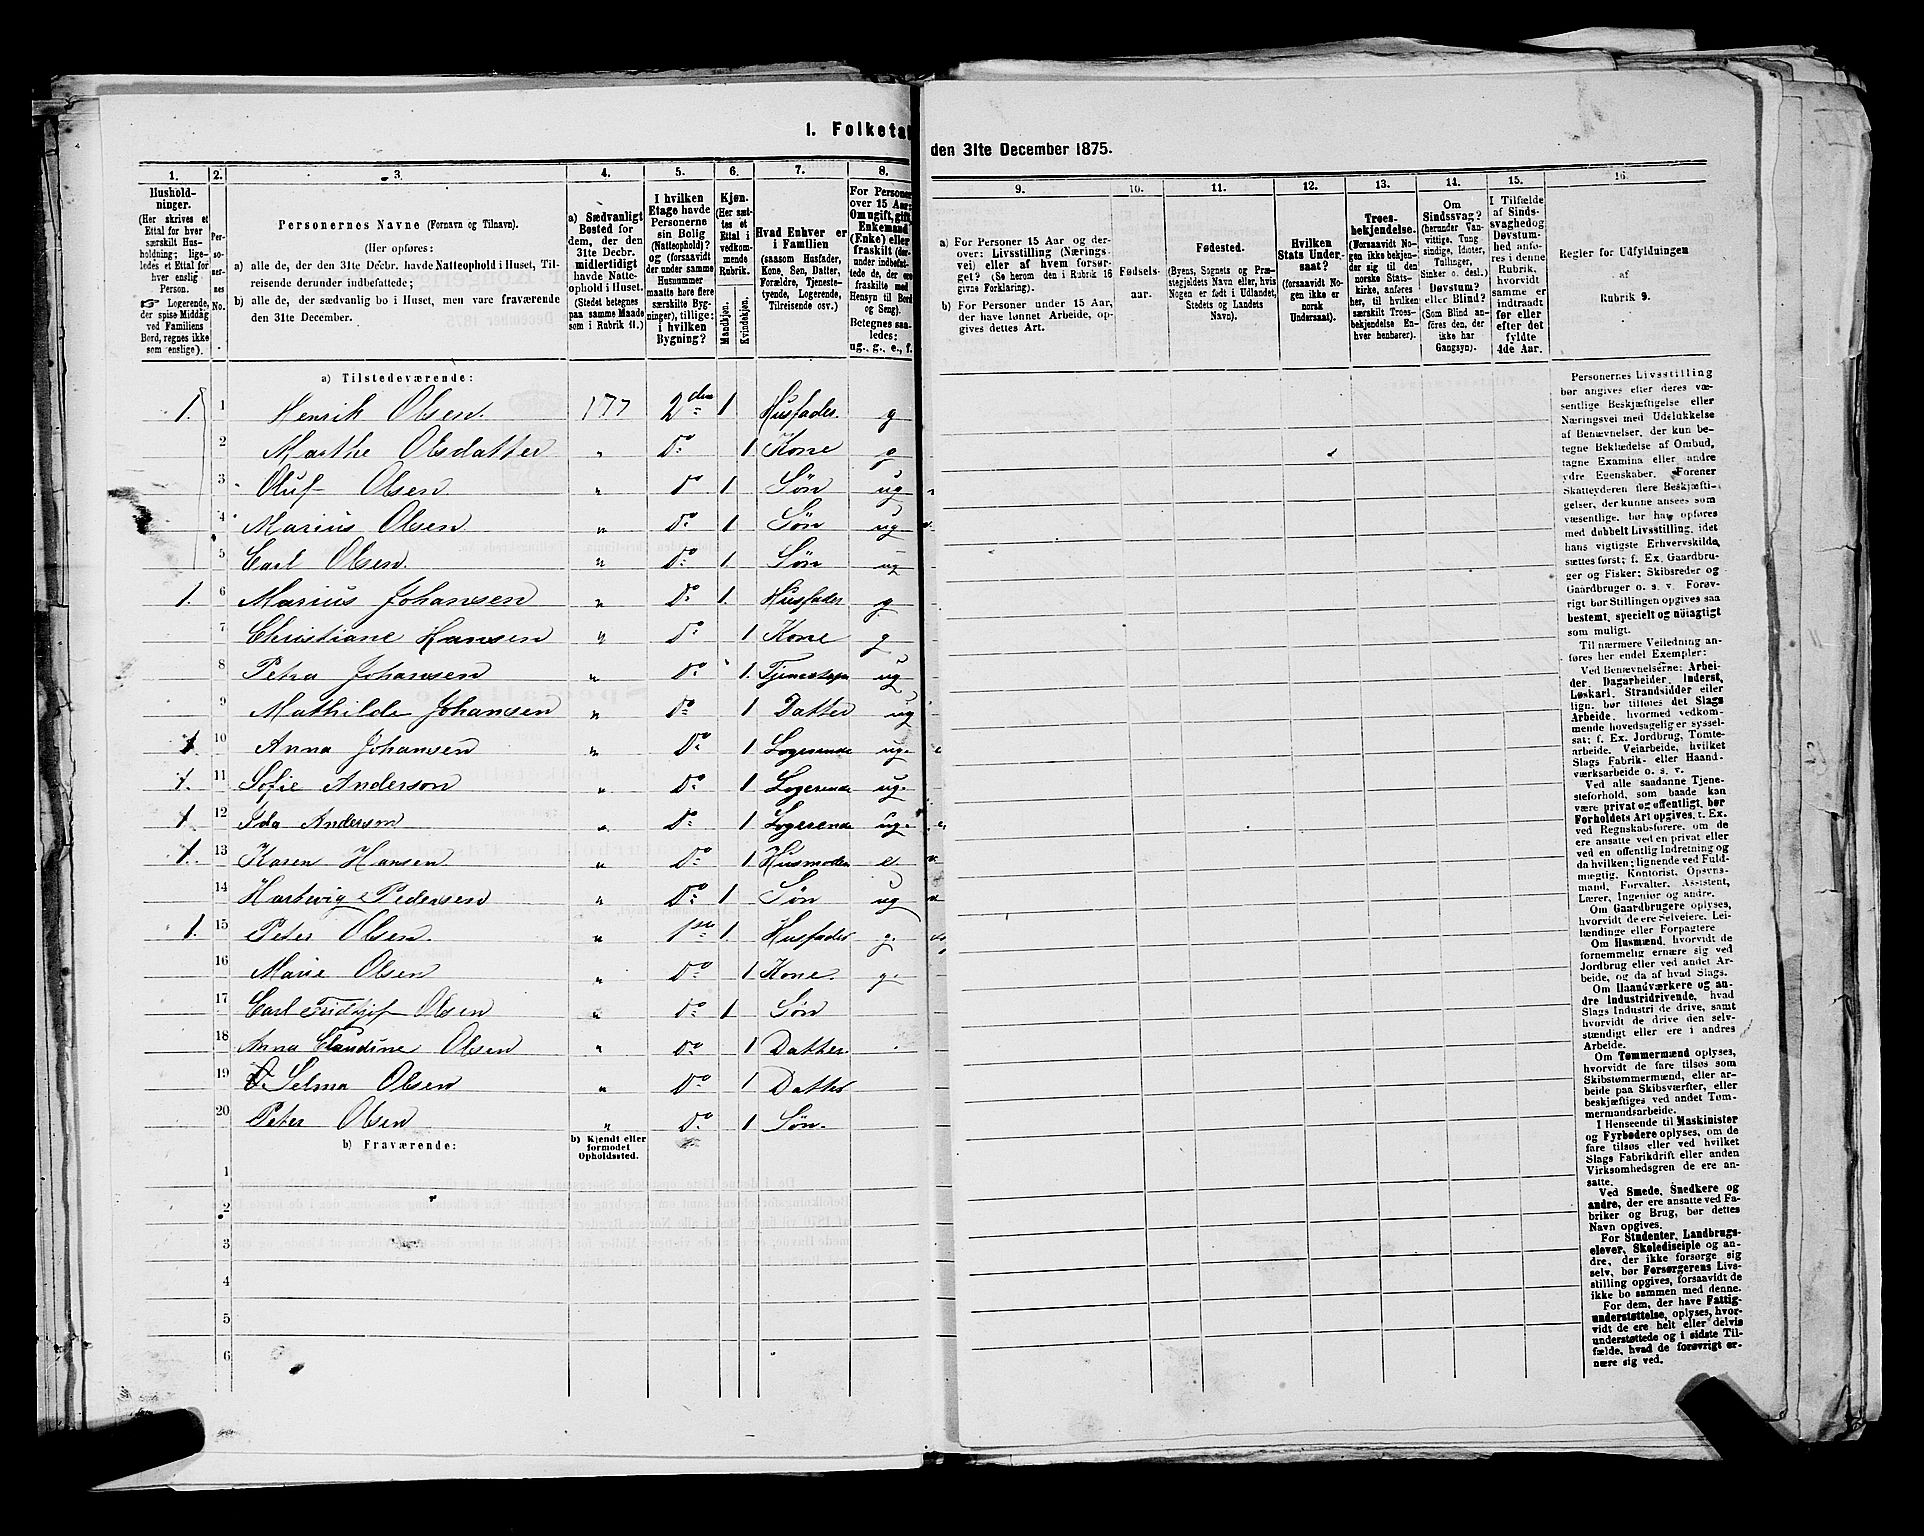 1. Folketal
den 31te December 1875.
1.
2.
3.
4.
5.
6.
7.
8.
Hushold-
ninger.
(Her skrives et
Ettal for hver
særskilt Hus-
holdning; lige-
ledes et Ettal for
hver enslig
Person.
☞ Logerende,
der spise Middag
ved Familiens
Bord, regnes ikke
som enslige).
Per-
soner-
nes
No.
Personernes Navne (Fornavn og Tilnavn).
(Her opføres:
a) alle de, der den 31te Decbr. havde Natteophold i Huset, Til-
reisende derunder indbefattede;
b) alle de, der sædvanlig bo i Huset, men vare fraværende
den 31te December.
a) Sædvanligt
Bosted for
dem, der den
31te Decbr.
midlertidigt
havde Natte-
ophold i Huset.
(Stedet betegnes
paa samme Maade
som i Rubrik 11.)
I hvilken
Etage havde
Personerne
sin Bolig
(Natteophold)?
og (forsaavidt
der under samme
Husnummer
maatte høre flere
særskilte Byg-
ninger), tillige:
i hvilken
Bygning?
Kjøn.
(Her sæt-
tes et
Ettal i
vedkom-
mende
Rubrik.
Mandkjøn.
Kvindekjøn.
Hvad Enhver er
i Familien
(saasom Husfader,
Kone, Søn, Datter,
Forældre, Tjeneste-
tyende, Logerende,
Tilreisende osv.)
For Personer
over 15 Aar:
Om ugift, gift,
Enkemand
(Enke) eller
fraskilt (der-
under indbefat-
tede de, der ere
fraskilte med
Hensyn til Bord
og Seng).
Betegnes saa-
ledes:
ug., g., e., f.
a) Tilstedeværende:
1. 1 Henrik Olsen. 177 2den 1 Husfader. g
2 Marthe Olsdatter " Do 1 Kone g
3 Oluf Olsen " Do 1. Søn ug
4 Marius Olsen " Do 1. Søn ug
5 Carl Olsen. " Do 1. Søn ug
1. 6 Marius Johansen " Do 1. Husfader g.
7 Christiane Hansen " Do 1 Kone g
8 Petra Johansen " Do 1. ug
9 Mathilde Johansen " Do 1 Datter ug
1 10 Anna Johansen " Do 1 Logerende ug.
1. 11 Sofie Anderson " Do 1 Logerende ug.
1 12 Ida Anderson " Do 1 Logerende ug.
1. 13 Karen Hansen " Do 1. Husmoder e
14 Hartevig Pedersen " Do 1 Søn ug
1. 15 Peter Olsen. " 1ste 1. Husfader g.
16 Marie Olsen " Do 1 Kone. g.
17 Carl Olsen " Do 1 Søn
18 Anna Claudine Olsen " Do 1 Datter.
19 Selma Olsen " Do 1 Datter
20 Peter Olsen " Do 1 Søn.
b) Fraværende:
b) Kjendt eller
formodet
Opholdssted.
1
2
3
4
5
6
9.
10.
11.
12.
13.
14.
15.
16.
a) For Personer 15 Aar og der-
over: Livsstilling (Nærings-
vei) eller af hvem forsør-
get? (Se herom den i Rubrik 16
givne Forklaring).
b) For Personer under 15 Aar,
der have lønnet Arbeide, op-
gives dettes Art.
Fødsels-
aar.
Fødested.
(Byens, Sognets og Præ-
stegjeldets Navn eller, hvis
Nogen er født i Udlandet,
Stedets og Landets
Navn).
Hvilken
Stats Under-
saat?
(forsaavidt No-
gen ikke er
norsk
Undersaat).
Troes-
bekjendelse.
(Forsaavidt No-
gen ikke bekjen-
der sig til den
norske Stats-
kirke, anføres
her, til hvilken
særskilt Troes-
bekjendelse En-
hver henhører).
Om
Sindssvag?
(herunder Van-
vittige, Tung-
sindige, Idioter,
Tullinger,
Sinker o. desl.)
Døvstum?
eller Blind?
(Som Blind an-
føres den, der
ikke har
Gangsyn).
I Tilfælde
af Sinds-
svaghed og
Døvstum-
hed anfø-
res i denne
Rubrik,
hvorvidt
samme er
indtraadt
før eller
efter det
fyldte
4de Aar.
Regler for Udfyldningen
af
Rubrik 9.
Personernes Livsstilling
bør angives efter deres væ-
sentlige Beskjæftigelse eller
Næringsvei med Udelukkelse
af Benævnelser, der kun be-
tegne Beklædelse af Ombud,
tagne Examina eller andre
ydre Egenskaber. Forener
Skatteyderen flere Beskjæfti-
gelser, der kunne ansees som
væsentlige, bør han opføres
med dobbelt Livsstilling, idet
hans vigtigste Erhvervskilde
sættes først; f. Ex. Gaardbru-
ger og Fisker; Skibsreder og
Gaardbruger o. s. v. Forøv-
rigt bør Stillingen opgives saa
bestemt, specielt og nøiagtigt
som muligt.
Til nærmere Veiledning an-
føres her endel Exempler:
Ved Benævnelserne: Arbei-
der, Dagarbeider, Inderst,
Løskarl, Strandsidder eller
lign. bør tilføies det Slags
Arbeide, hvormed vedkom-
mende hovedsagelig er syssel-
sat; f. Ex. Jordbrug, Tomte-
arbeide, Veiarbeide, hvilket
Slags Fabrik- eller Haand-
værksarbeide o. s. v.
Ved alle saadanne Tjene-
steforhold, som baade kan
være privat og offentligt, bør
Forholdets Art opgives, t. Ex.
ved Regnskabsførere, om de
ere ansatte ved en privat eller
ved en offentlig Indretning og
da hvilken; lignende ved Fuld-
mægtig, Kontorist, Opsyns-
mand, Forvalter, Assistent,
Lærer, Ingeniør og andre.
Om Gaardbrugere oplyses,
hvorvidt de ere Selveiere, Lei-
lændinge eller Forpagtere
Om Husmænd, hvorvidt de
fornemmelig ernære sig ved
Jordbrug eller ved andet Ar-
beide, og da af hvad Slags.
Om Haandværkere og an-
dre Industridrivende, hvad
Slags Industri de drive, samt
hvorvidt de drive den selv-
stændigt eller ere i andres
Arbeide.
Om Tømmermænd oplyses,
hvorvidt de fare tilsøs som
Skibstømmermænd, eller ar-
beide paa Skibsværfter, eller
beskjæftiges ved andet Tøm-
mermandsarbeide.
I Henseende til Maskinister
og Fyrbødere oplyses, om de
fare tilsøs eller ved hvilket
Slags Fabrikdrift eller anden
Virksomhedsgren de ere an-
satte.
Ved Smede, Snedkere og
andre, der ere ansatte ved Fa-
briker og Brug, bør dettes
Navn opgives.
For Studenter, Landbrugs-
elever, Skoledisciple og an-
dre, der ikke forsørge sig
selv, bør Forsørgerens Livs-
stilling opgives, forsaavidt de
ikke bo sammen med denne.
For dem, der have Fattig-
understøttelse, oplyses, hvor-
vidt de ere helt eller delvis
understøttede og i sidste Til-
fælde, hvad de forøvrigt er-
nære sig ved.